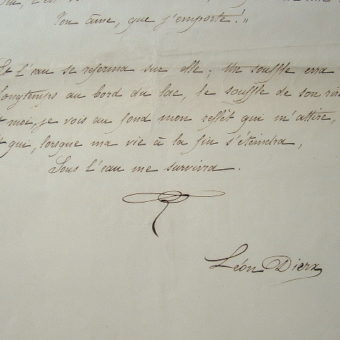 Ton âme, que j'emporte!"
Et l'eau se referma sur elle; Un souffle erra
Longtemps au bord du lac, le souffle de son
Et moi, je vois au fond mon reflet qui m'attire,
Et qui, lorsque ma vie à la fin s'éteindra,
Sous l'eau me survivra.
Léon Dierx